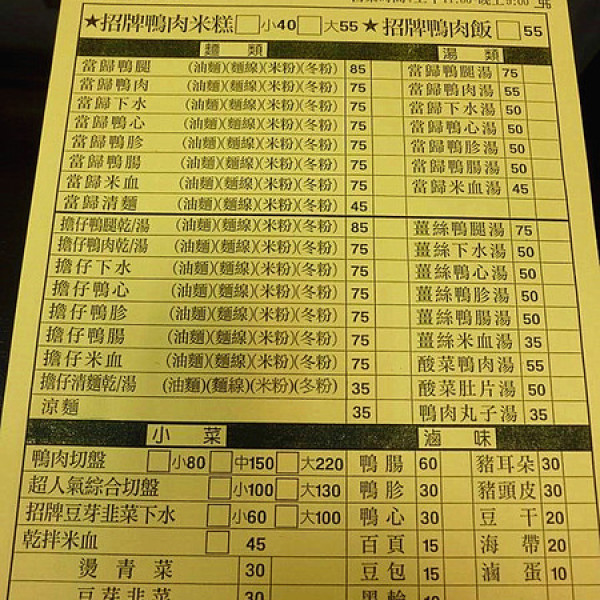 ★招牌鴨肉米糕 小40 大55 ★招牌鴨肉飯 55
麵類 湯類
當歸鴨腿 (油麵)(麵線)(米粉)(冬粉) 85 當歸鴨腿湯 75
當歸鴨肉 (油麵)(麵線)(米粉)(冬粉) 75 當歸鴨肉湯 55
當歸下水 (油麵)(麵線)(米粉)(冬粉) 75 當歸下水湯 50
當歸鴨心 (油麵)(麵線)(米粉)(冬粉) 75 當歸鴨心湯 50
當歸鴨胗 (油麵)(麵線)(米粉)(冬粉) 75 當歸鴨胗湯 50
當歸鴨腸 (油麵)(麵線)(米粉)(冬粉) 75 當歸鴨腸湯 50
當歸米血 (油麵)(麵線)(米粉)(冬粉) 75 當歸米血湯 45
當歸清麵 (油麵)(麵線)(米粉)(冬粉) 45
擔仔鴨腿乾/湯 (油麵)(麵線)(米粉)(冬粉) 85 薑絲鴨腿湯 75
擔仔鴨肉乾/湯 (油麵)(麵線)(米粉)(冬粉) 75 薑絲下水湯 50
擔仔下水 (油麵)(麵線)(米粉)(冬粉) 75 薑絲鴨心湯 50
擔仔鴨心 (油麵)(麵線)(米粉)(冬粉) 75 薑絲鴨胗湯 50
擔仔鴨胗 (油麵)(麵線)(米粉)(冬粉) 75 薑絲鴨腸湯 50
擔仔鴨腸 (油麵)(麵線)(米粉)(冬粉) 75 薑絲米血湯 35
擔仔米血 (油麵)(麵線)(米粉)(冬粉) 75 酸菜鴨肉湯 55
擔仔清麵乾/湯 (油麵)(麵線)(米粉)(冬粉) 35 酸菜肚片湯 50
涼麵 35 鴨肉丸子湯 35
小菜 滷味
鴨肉切盤 小80 中150 大220 鴨腸 60 豬耳朵 30
超人氣綜合切盤 小100 大130 鴨胗 30 豬頭皮 30
招牌豆芽韭菜下水 小60 大100 鴨心 30 豆干 20
乾拌米血 45 百頁 15 海帶 20
燙青菜 30 豆包 15 滷蛋 10
豆芽韭菜 30 黑輪